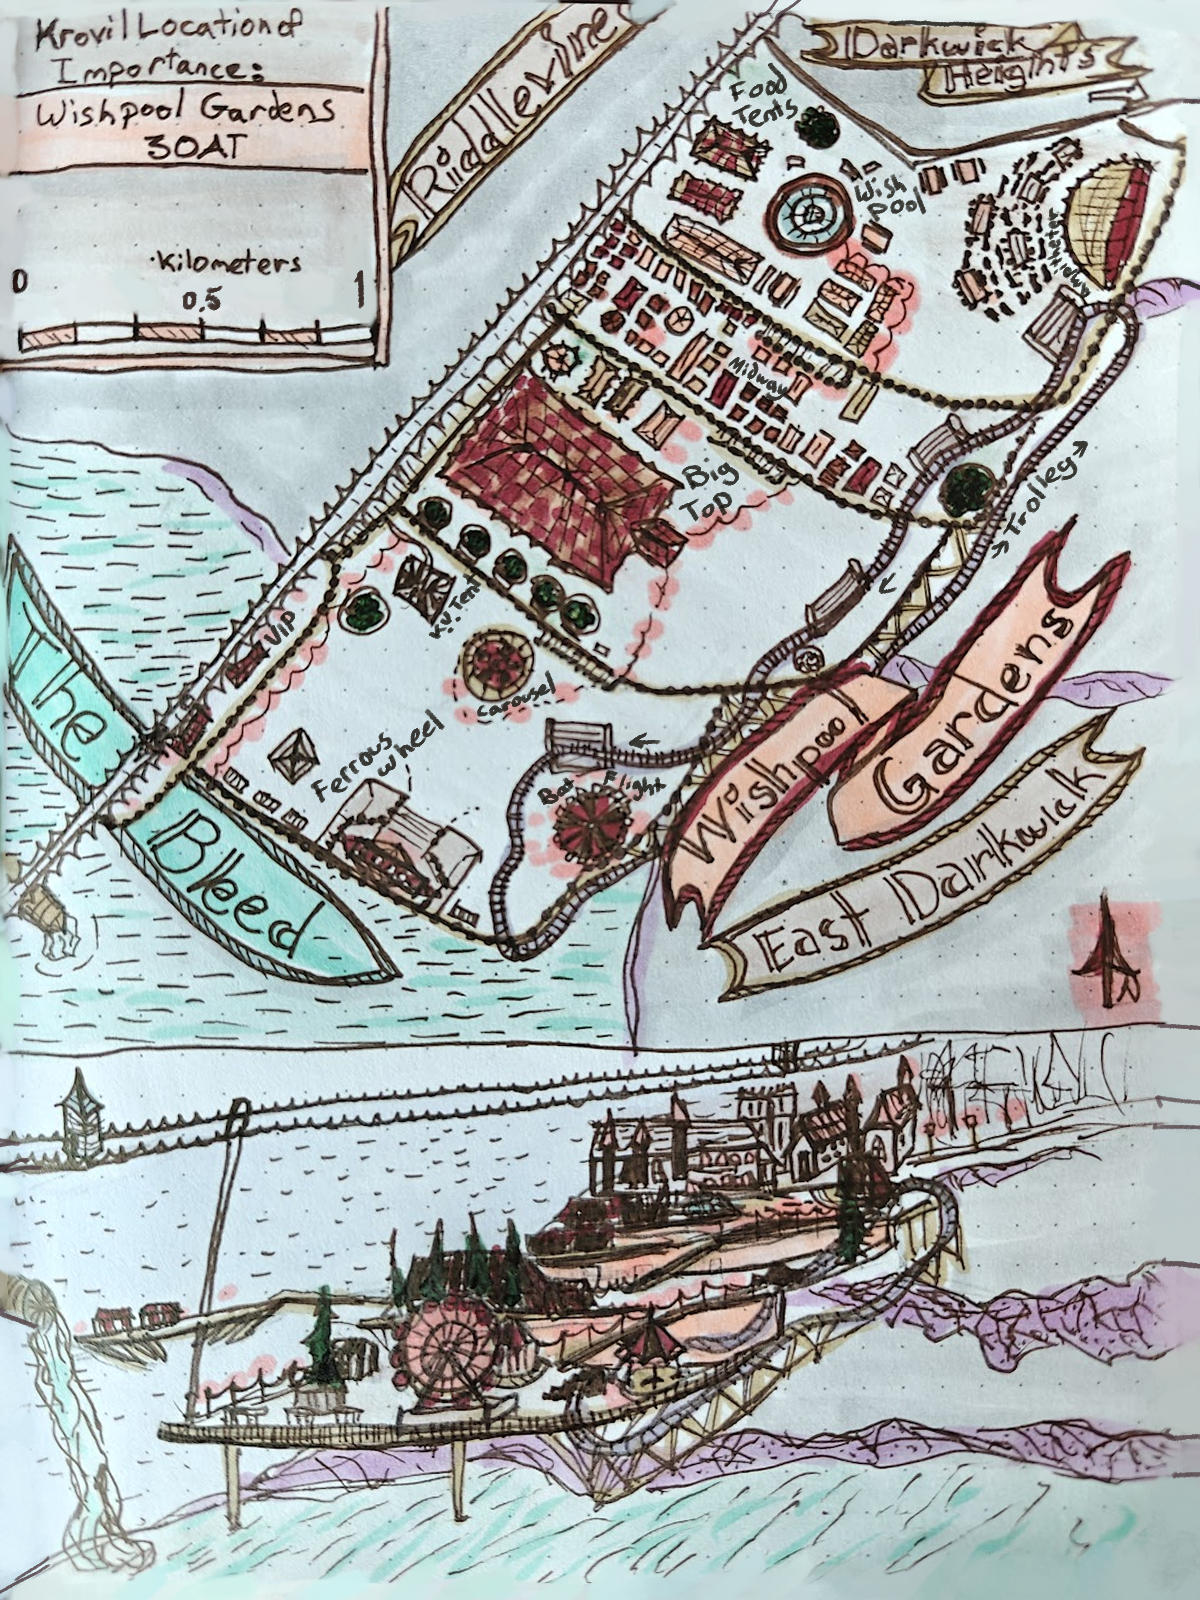 Krovil Location of
Importance:
Wishpool Gardens
30AT
Kilometers
0
0.5
1
Riddlevine
Darkwick
Heights
Food
Tents
Wish
Pool
Midway
Big
Top
Trolley
VIP
KV Tent
Carousel
Ferrous
Wheel
Bat Flight
The
Bleed
Wishpool
Gardens
East Darkwick